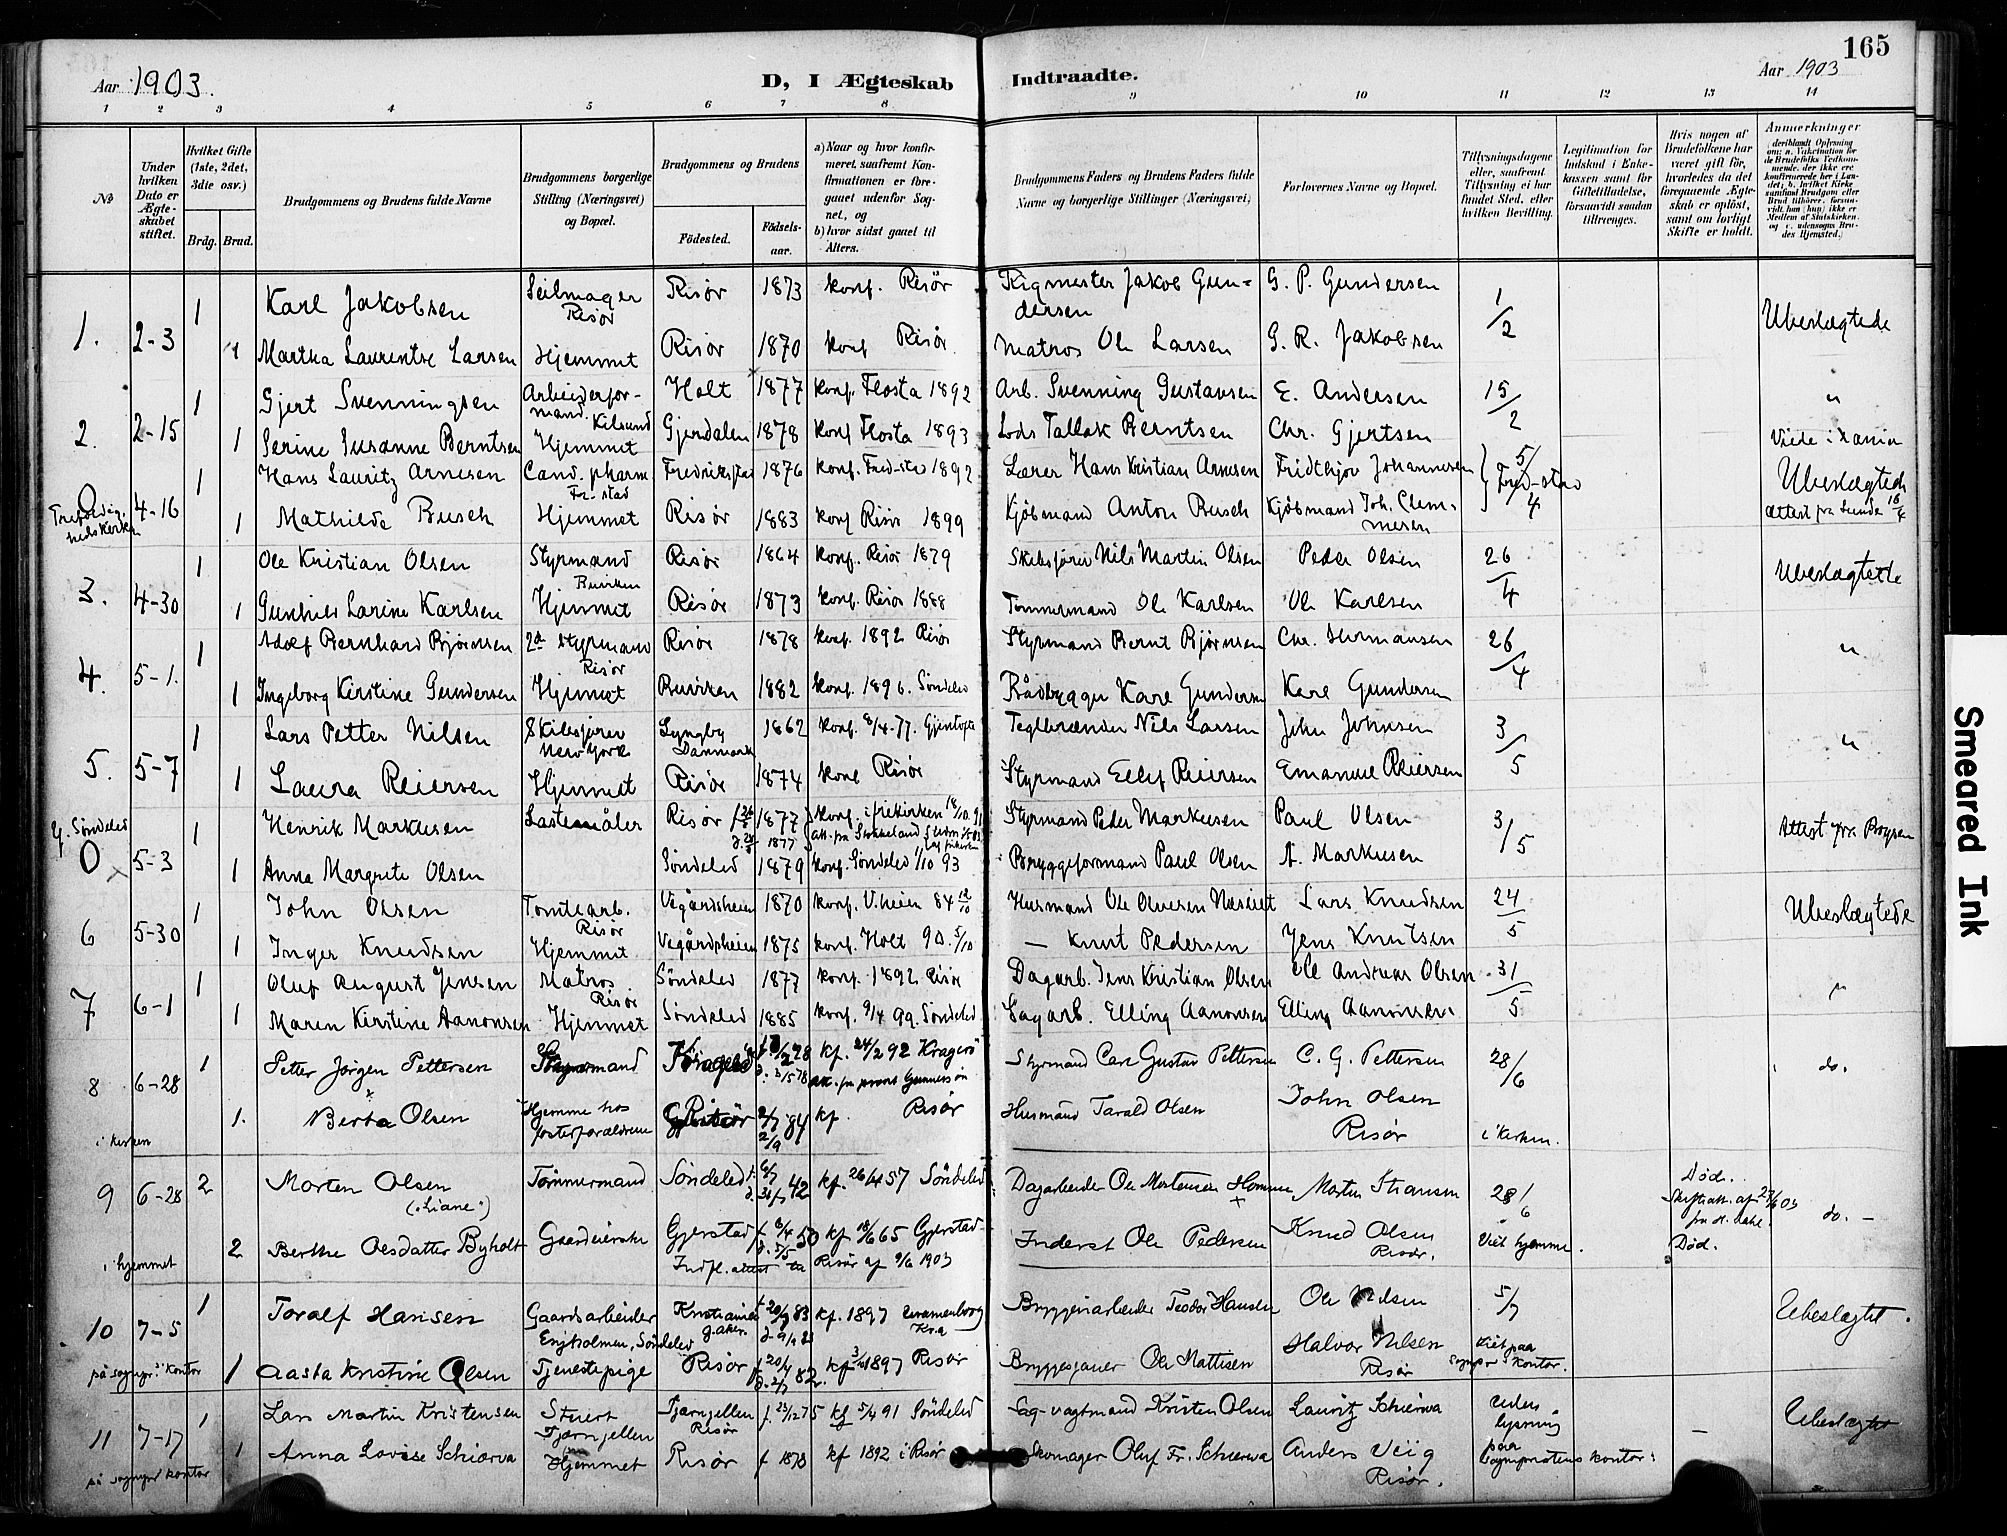 165
Aar 1903.
D, I Ægteskab Indtraadte.
Aar 1903
1 2 3 4 5 6 7 8 9 10 11 12 13 14
No
Under hvilken Dato er Ægteskabet stiftet.
Hvilket Gifte (1ste, 2det, 3die osv.)
Brdg. Brud.
Brudgommens og Brudens fulde Navne
Brudgommens borgerlige Stilling (Næringsvei) og Bopæl.
Brudgommens og Brudens
Födested. Födsels-aar.
a) Naar og hvor konfirmeret, saafremt Konfirmationen er foregaaet udenfor Sognet, og
b) hvor sidst gaaet til Alters.
Brudgommens Faders og Brudens Faders fulde Navne og borgerlige Stillinger (Næringsvei)
Forlovernes Navne og Bopæl.
Tillysningsdagene eller, saafremt Tillysning ei har fundet Sted, efter hvilken Bevilling.
Legitimation for Indskud i Enkekassen samt for Giftetilladelse, forsaavidt saadan tiltrænges.
Hvis nogen af Brudefolkene har været gift før, hvorledes da det foregaaende Ægteskab er opløst, samt om lovligt Skifte er holdt.
Anmærkninger
1. 2-3 1 Karl Jakobsen Seilmager Risør Risør 1873 konf. Risør Rigmester Jakob Gundersen G. P. Gundersen 1/2 Ubeslægtede
1 Martha Laurentse Larsen Hjemmet Risør 1870 konf Risør. Matros Ole Larsen G. R. Jakobsen
2. 2-15 1 Gjert Svenningsen Arbeiderformand. Kilsund Holt 1877 konf. Flosta 1892 Arb. Svenning Gustavsen E. Andersen 15/2 "
1 Serine Susanne Berntsen Hjemmet Gjerdalen 1878 konf Flosta 1893 Lods Tallak Berntsen Chr. Gjertsen
0 4-16 1 Hans Lauritz Arnesen Cand. pharm Fr-stad Fredrikstad 1876 konf. Fred-stad 1892 Lærer Hans Kristian Arnesen Fridthjov Johannesen 5/4 Fred-stad Ubeslægtede
1 Mathilde Busch Hjemmet Risør 1883 konf Risør 1899 Kjöbmand Anton Busch Kjöbmand Joh. Clemmesen
3. 4-30 1 Ole Kristian Olsen Styrmand Buviken Risør 1864 konf. Risør 1879 Skibsfører Nils Martin Olsen Peder Olsen 26/4 Ubeslægtede
1 Gunhild Larine Karlsen Hjemmet Risør 1873 konf. Risør 1888 Tømmermand Ole Karlsen Ole Karlsen
4. 5-1. 1 Adolf Bernhard Bjørnsen 2de Styrmand Risør Risør 1878 konf. 1892 Risør Styrmand Bernt Bjørnsen Chr. Hermansen 26/4 "
1 Ingeborg Kirstine Gundersen Hjemmet Buviken 1882 konf. 1896. Søndeled Baadbygger Karl Gundersen Karl Gundersen
5. 5-7 1 Lars Petter Nilsen Skibsfører New York Lyngby Danmark 1862 konf. 8/4-77. Gjentofte Teglbrænder Nils Larsen John Johnsen 3/5 "
1 Laura Reiersen Hjemmet Risør 1874 konf Risør Styrmand Ellef Reiersen Emanuel Reiersen
Søndeled 0 5-3 1 Henrik Markusen Lastemåler Risør 1877 konf. i frikirken 18/10.91 Styrmand Peder Markusen Paul Olsen 3/5 Attest fra Boysen
1 Anna Margrete Olsen Søndeled 1879 konf. Søndeled 1/10 93 Bryggeformand Paul Olsen A. Markusen
6 5-30 1 John Olsen Tomtearb. Risør Vegårdsheien 1870 konf. V.heien 84 12/10 Husmand Ole Olversen Lars Knudsen 24/5 Ubeslægtede
1 Inger Knudsen Hjemmet Vegårdsheien 1875 konf. Holt 90. 5/10 — Knut Pedersen Jens Knutsen
7 6-1 1 Oluf August Jensen Matros Risør Søndeled 1877 konf. 1892 Risør Dagarb. Jens Kristian Olsen Ole Andreas Olsen 31/5 "
1 Maren Kirstine Aanonsen Hjemmet Søndeled 1885 konf. 9/4 99. Søndeled Sagarb. Elling Aanonsen Elling Aanonsen
8 6-28 1 Petter Jörgen Pettersen kf. 24/2 92 Kragerö Styrmand Carl Gustav Pettersen C. G. Pettersen 28/6 do.
i kirken 1. Berta Olsen Hjemme hos fosterforældrene 84 kf. Risör Husmand Tarald Olsen John Olsen Risör i kirken.
9 6-28 2 Morten Olsen ("Liane") Tömmermand Söndeled 42 kf. 26/4 57 Söndeled Dagarbeider Ole Mortensen 28/6 Död. do. —
i hjemmet 2 Berthe Olesdatter Byholt Gaardeierske Gjerstad 50 kf 18/6 65 Gjerstad Inderst Ole Pedersen Knud Olsen Risör. Viet hjemme. Död.
Indfl. attest til Risör af 9/6 1903
10 7-5 1 Toralf Hansen Gaardsarbeider Söndeled Kristiania 83 kf. 1897 Bryggeriarbeider Teodor Hansen Ole Nilsen 5/7 Ubeslægtet.
på sognpr: kontor 1 Aasta Kristine Olsen Tjenestepige Risör 82 kf 1897 Risör Ole Mattisen Halvor Nilsen Risör Viet paa Sognpr's kontor.
11 7-17 1 Lars Martin Kristensen Stuert Tjærnfjellen Tjærnfjellen Risör f. 23/12 75 kf 5/4 91 Söndeled Sag-vagtmand Kristen Olsen Lauritz Schierva uden lysning Ubeslægtet
på sognpr kontor 1 Anna Lovise Schierva Hjemmet Risör f 1878 kf 1892 i Risör Skomager Oluf Fr. Schierva Anders Veiig Risör. paa Sognprestens kontor.
Smeared Ink